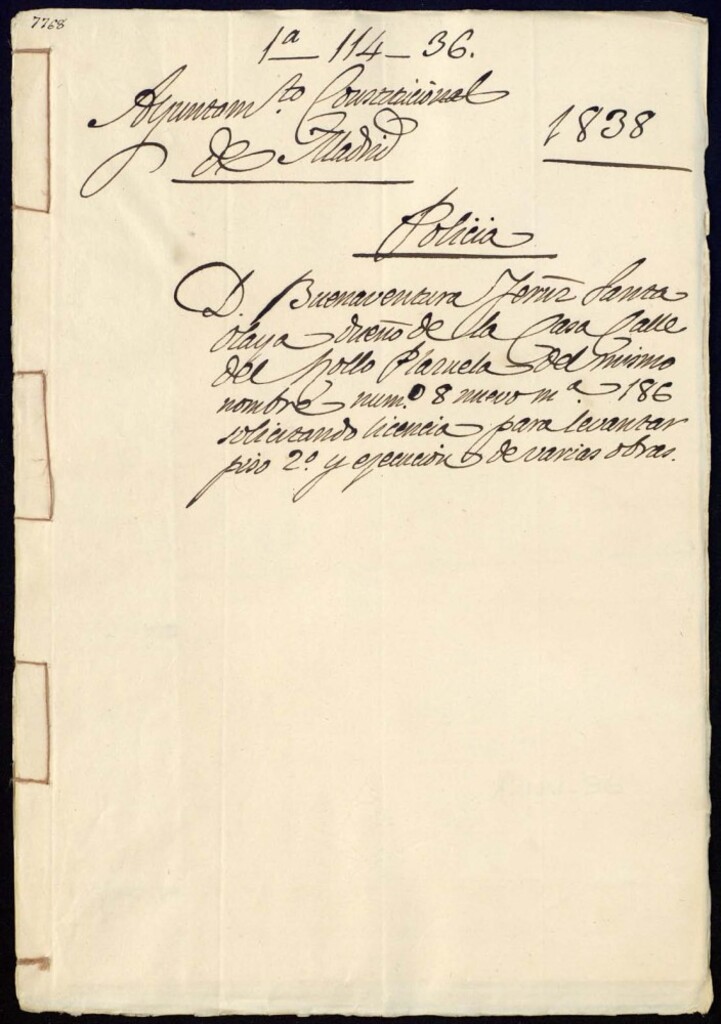 7768
1ª 114-36.
Ayuntamto Constitucional
de Madrid
1838
Policia
D. Buenaventura Santa
olaya dueño de la Casa Calle
del Pollo Plazuela del mismo
nombre num.º 8 nuevo mª 186
solicitando licencia para levantar
piso 2º y ejecucion de varias obras.